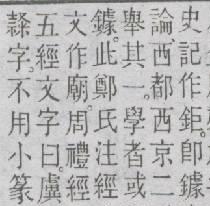 史記作鉅卽鐻
論西都西京二
舉其一學者或
鐻此鄭氏注經
文作廟周禮經
五經文字曰虞
字不用小篆